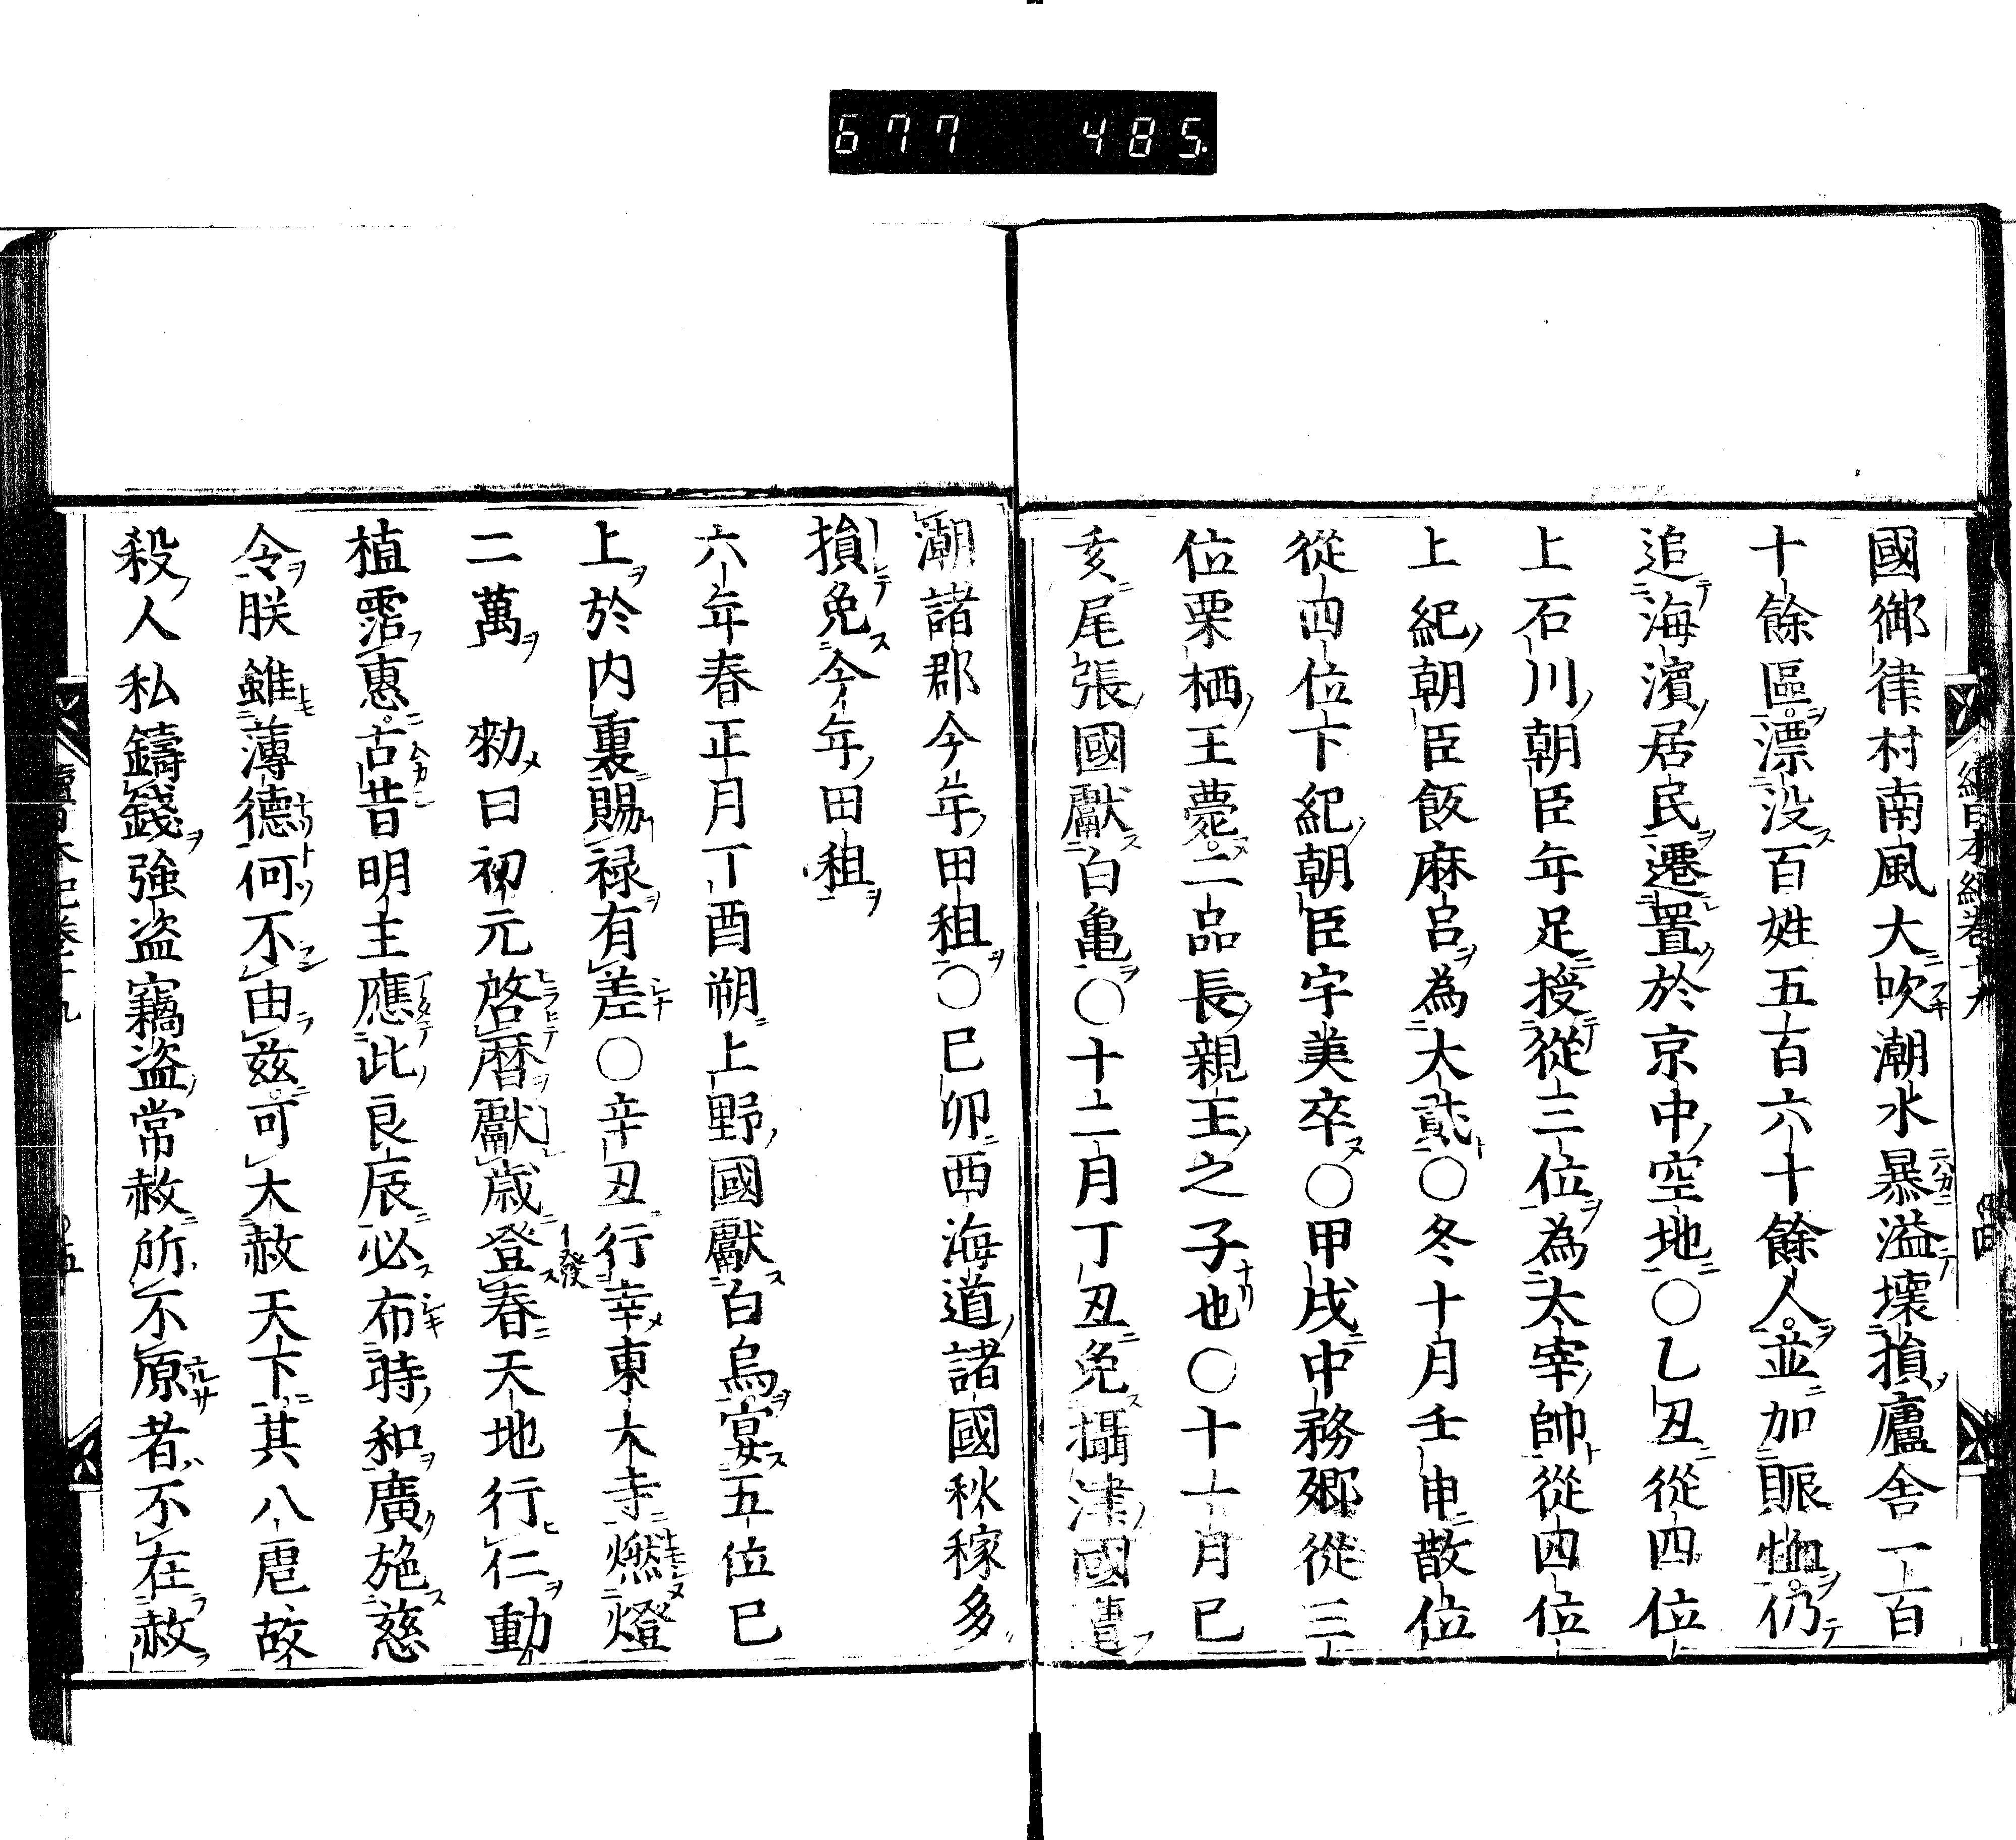 677 485
國御律村南風大吹潮水暴溢壞損廬舎一百
十餘區漂没百姓五百六十餘人並加賑恤仍
追海濱居民遷置於京中空地〇乙丑從四位
上石川朝臣年足授從三位為太宰帥從四位
上紀朝臣飯麻呂為大貳〇冬十月壬申散位
從四位下紀朝臣宇美卒〇甲戌中務卿從三
位栗栖王薨二品長親王之子也〇十一月己
亥尾張國獻白龜〇十二月丁丑免攝津國遭
潮諸郡今年田租〇己卯西海道諸國秋稼多
損免今年田租
六年春正月丁酉朔上野國獻白烏宴五位已
上於内裏賜禄有差〇辛丑行幸東大寺燃燈
二萬 勅曰初元啓暦獻歳登春天地行仁動
植霑惠古昔明主應此良辰必布時和廣施慈
令朕雖薄德何不由茲可大赦天下其八虐故
殺人私鑄錢強盗竊盗常赦所不原者不在赦